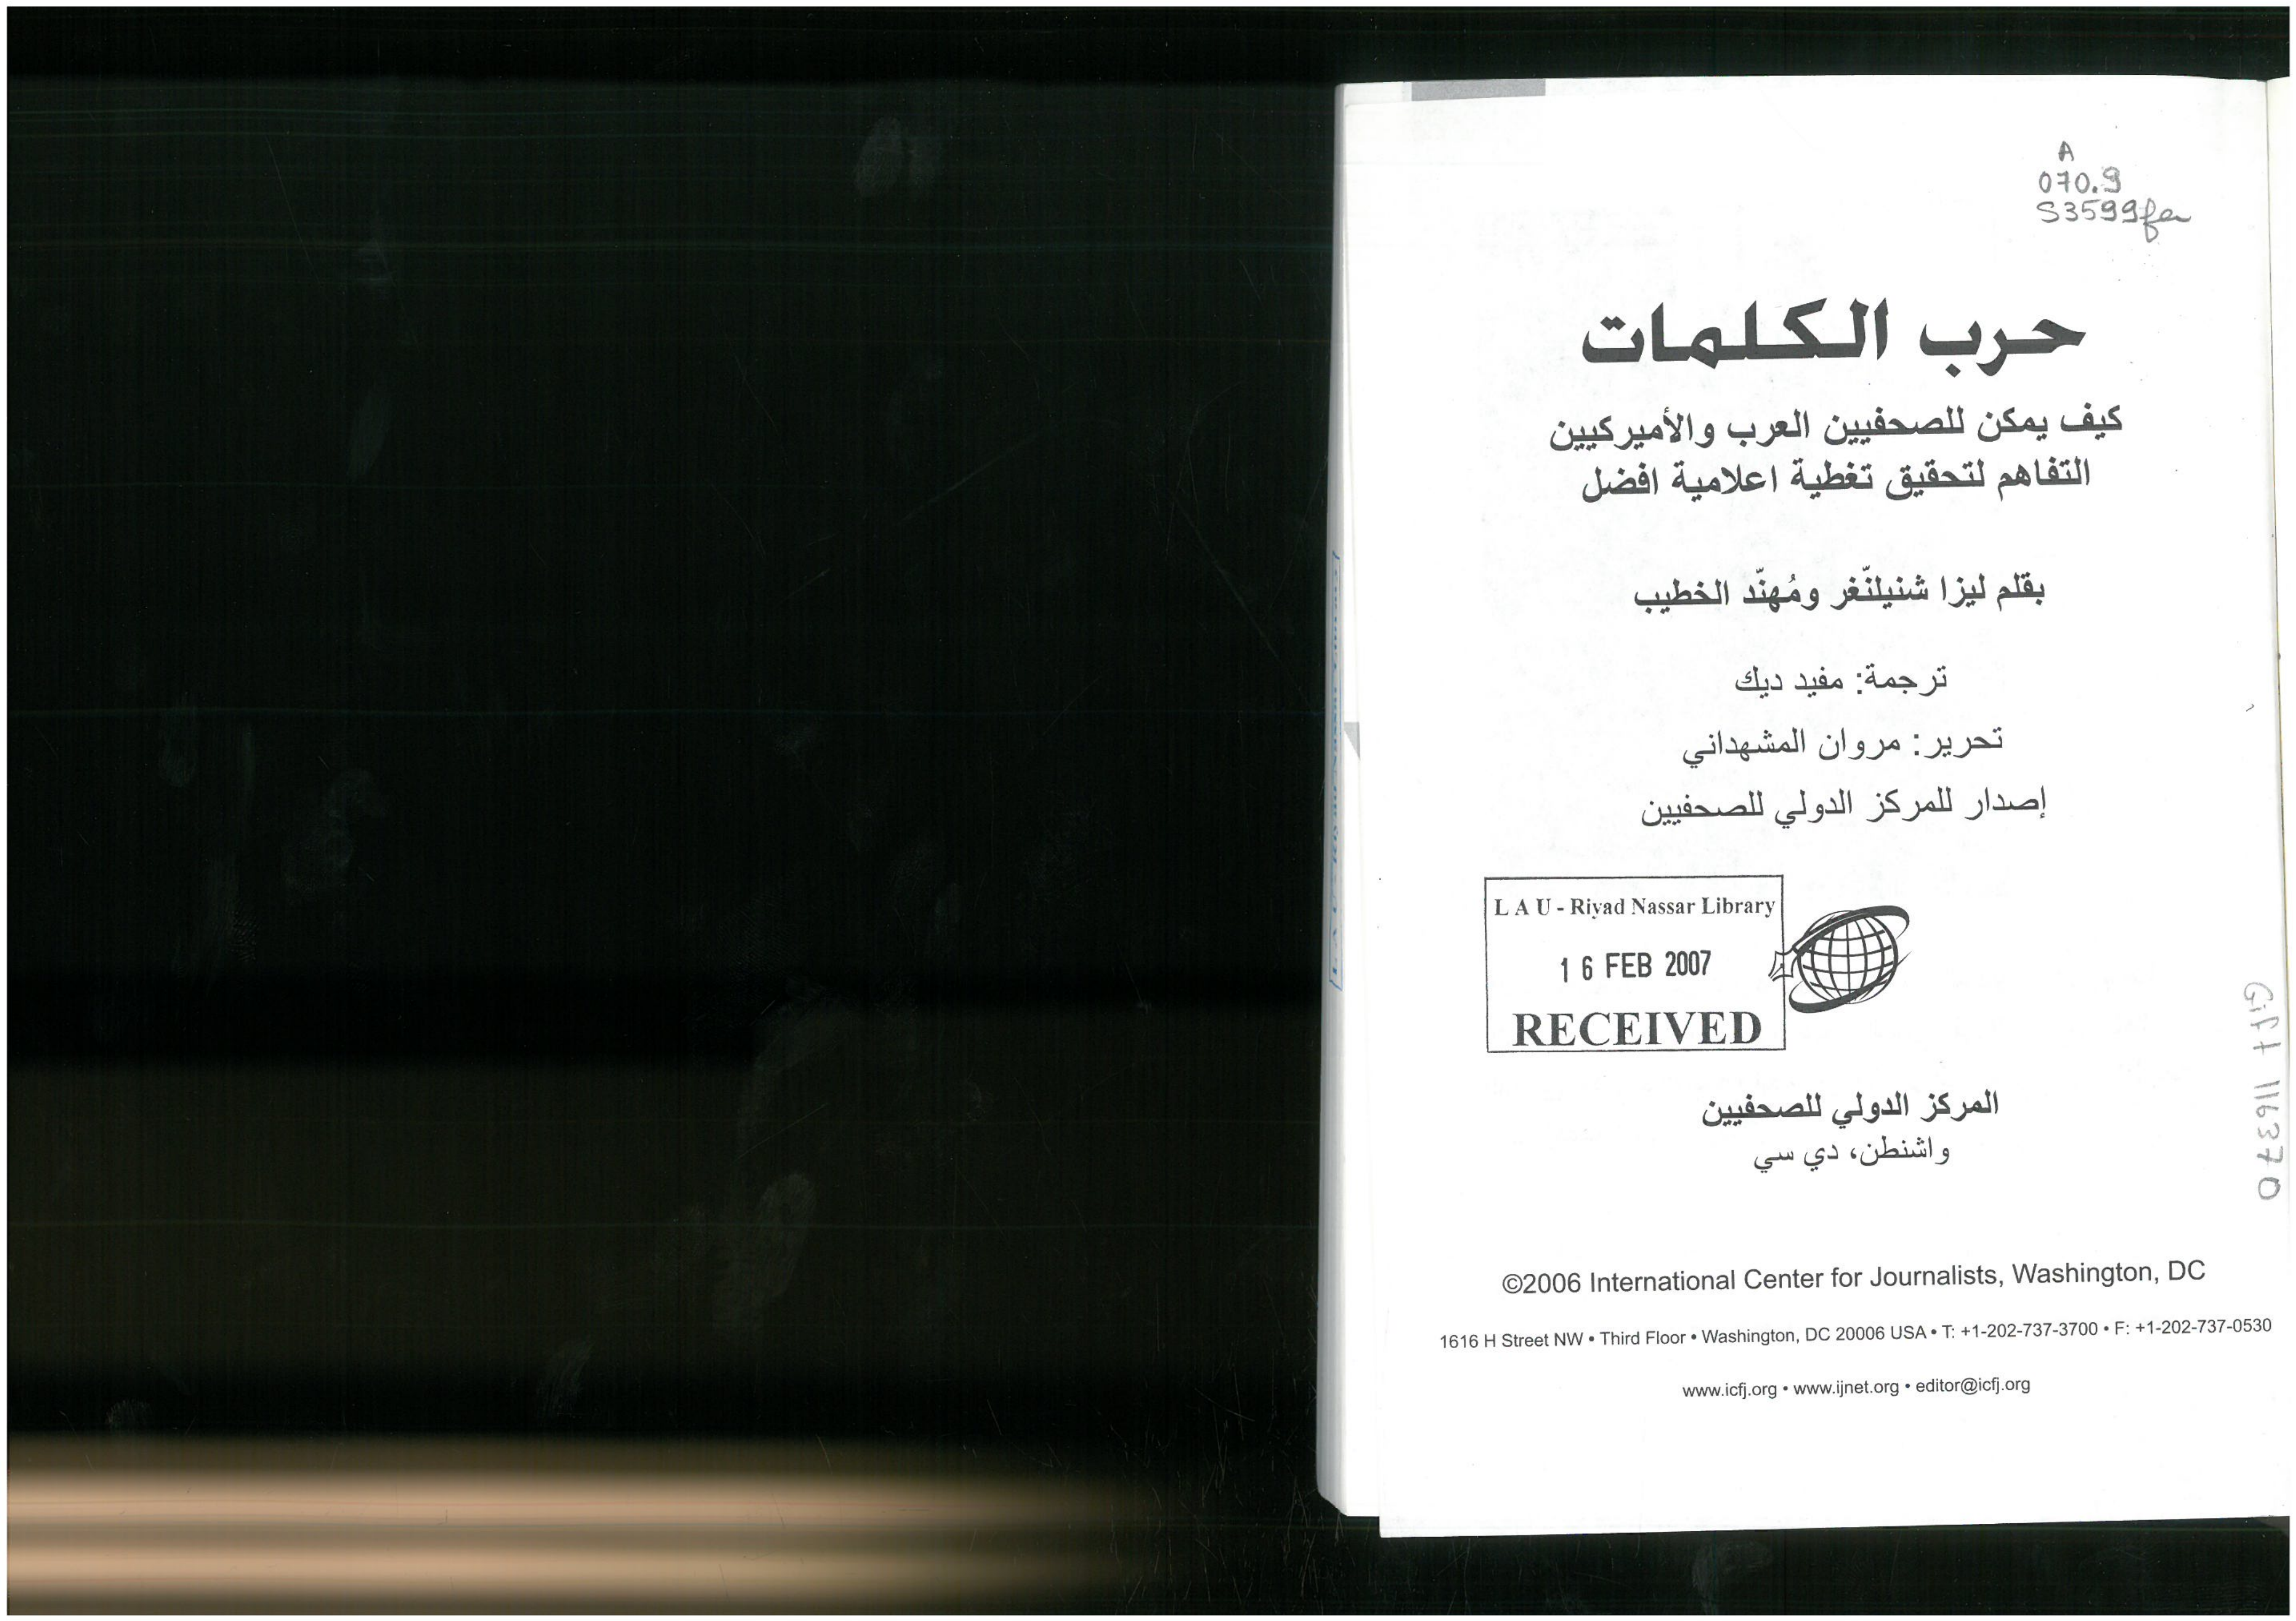 A
070.9
S3599fa
حرب الكلمات
كيف يمكن للصحفيين العرب والأميركيين
التفاهم لتحقيق تغطية اعلامية افضل
بقلم ليزا شنيلنّغر ومُهنّد الخطيب
ترجمة: مفيد ديك
تحرير: مروان المشهداني
إصدار للمركز الدولي للصحفيين
L A U - Riyad Nassar Library
1 6 FEB 2007
RECEIVED
المركز الدولي للصحفيين
واشنطن، دي سي
©2006 International Center for Journalists, Washington, DC
1616 H Street NW • Third Floor • Washington, DC 20006 USA • T: +1-202-737-3700 • F: +1-202-737-0530
www.icfj.org • www.ijnet.org • editor@icfj.org
Gift 116370